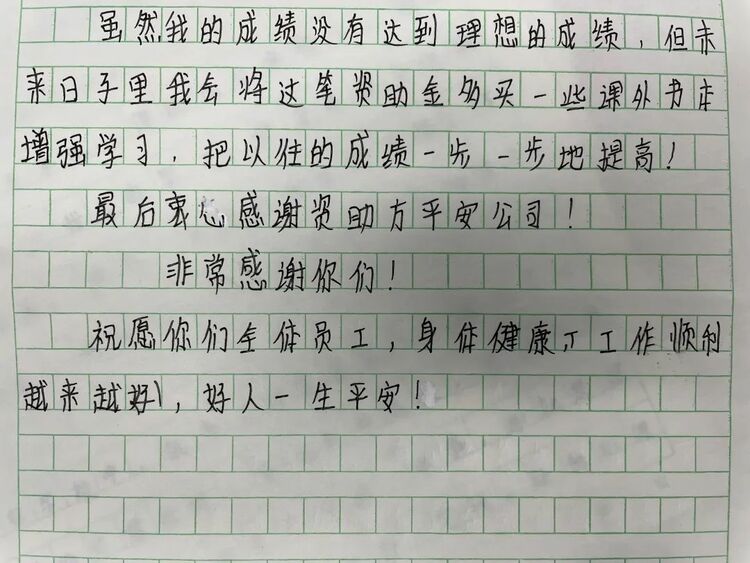 虽然我的成绩没有达到理想的成绩，但未
来日子里我会将这笔资助金多买一些课外书本
增强学习，把以往的成绩一步一步地提高！
最后衷心感谢资助方平安公司！
非常感谢你们！
祝愿你们全体员工，身体健康，工作顺利
越来越好，好人一生平安！